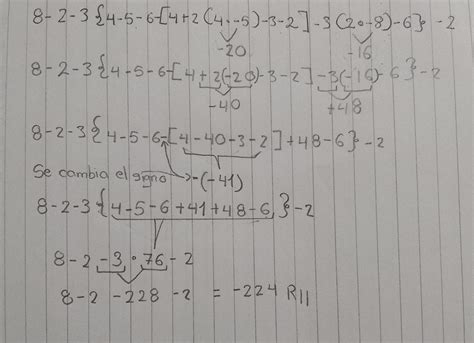 8-2-3{4-5-6-[4+2(4·-5)-3-2]-3(2·-8)-6}-2
-20 -16
8-2-3{4-5-6-[4+2(-20)-3-2]-3(-16)-6}-2
-40 +48
8-2-3{4-5-6-[4-40-3-2]+48-6}-2
Se cambia el signo -(-41)
8-2-3{4-5-6+41+48-6}-2
8-2-3·76-2
8-2-228-2 = -224 R//